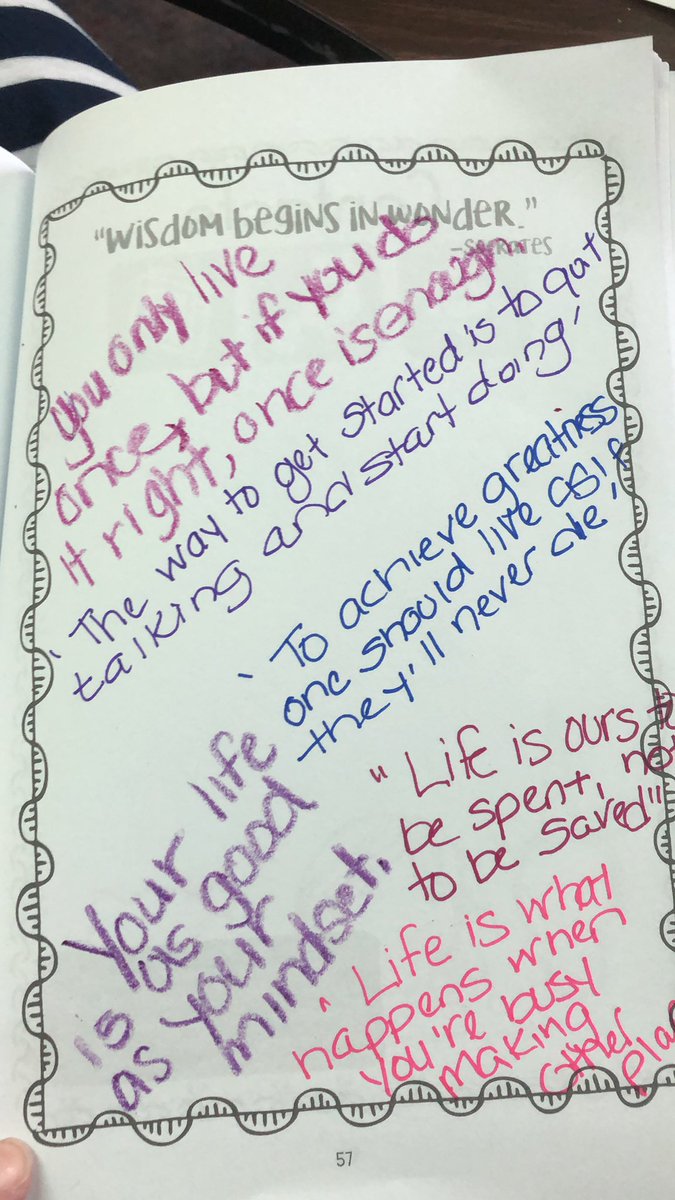 "WISDOM BEGINS IN WONDER."
-SOCRATES
you only live
once, but if you do
it right, once is enough.
' The way to get started is to quit
talking and start doing'
' To achieve greatness
one should live as if
they'll never die,'
" Life is ours to
be spent, not
to be saved"
Your life
is as good
as your
mindset.
" Life is what
happens when
you're busy
making
other
plans
57